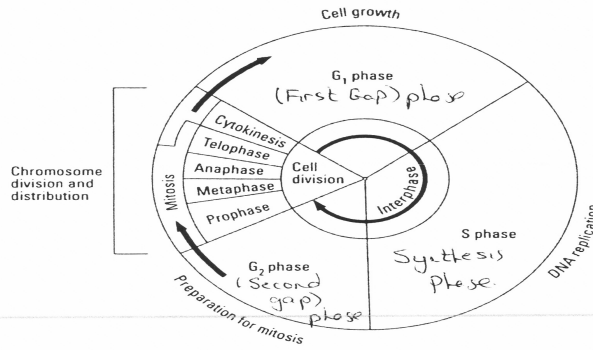 Cell growth
G₁ phase
(First Gap) phase
Cytokinesis
Telophase
Anaphase
Metaphase
Prophase
Cell
division
Interphase
Mitosis
Chromosome
division and
distribution
S phase
Synthesis
phase.
DNA replication
G₂ phase
(Second
gap)
phase
Preparation for mitosis